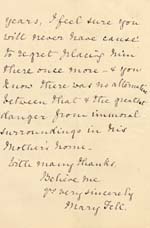 years, I feel sure you
will never have cause
to regret, placing him
there once more – & you
know there was no alternative
between that & the greatest
danger from immoral
surroundings in his
Mother's home –
With many thanks,
Believe me
Yrs very sincerely
Mary Fell.